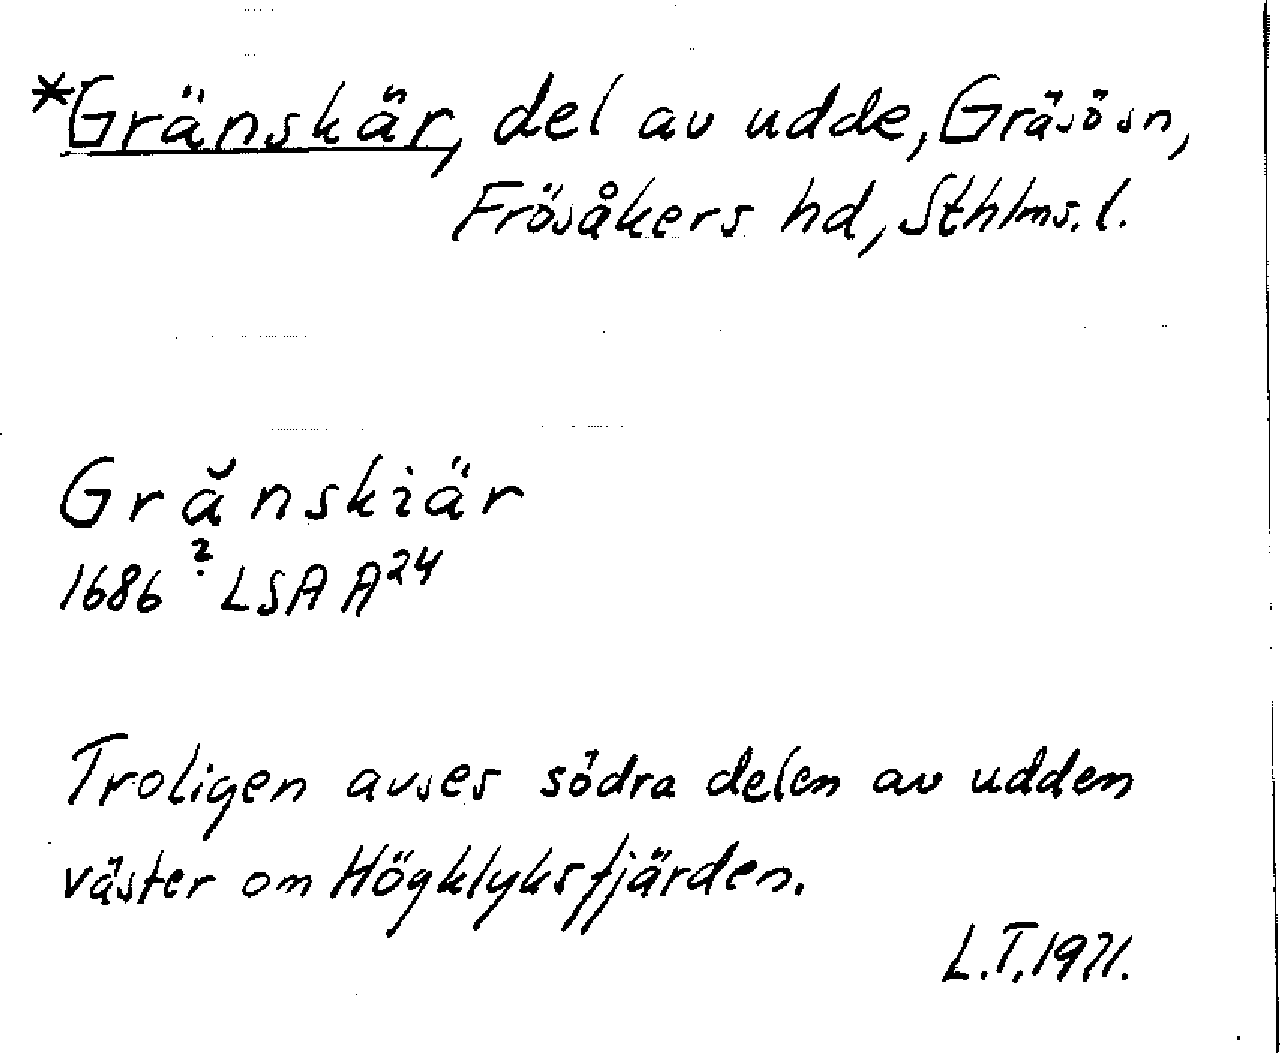 *Gränskär, del av udde, Gräsösn,
Frösåkers hd, Sthlms. l.
Grănskiär
1686 ? LSA A24
Troligen avses södra delen av udden
väster om Högklyksfjärden.
L.T. 1971.